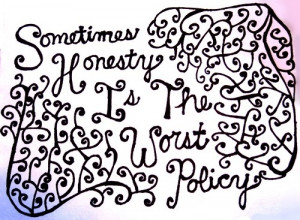 Sometimes
Honesty
Is The
Worst
Policy